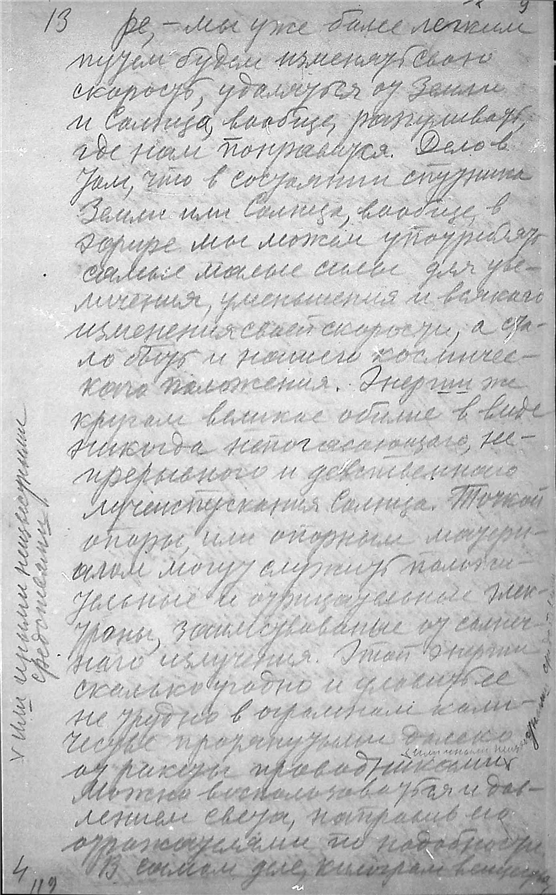 13
ре, – мы уже более легким
путем будем изменять свою
скорость, удаляться от Земли
и Солнца, вообще, разгуливать,
где нам понравится. Дело в
том, что в состоянии спутника
Земли или Солнца, вообще, в
эфире мы можем употреблять
самые малые силы для уве-
личения, уменьшения и всякого
изменения своей скорости, а ста-
ло быть и нашего космичес-
кого положения. Энергии же
кругом великое обилие в виде
никогда непогасающего, не-
прерывного и девственного
лучеиспускания Солнца. Точкой
опоры, или опорным матери-
алом могут служить положи-
тельные и отрицательные элек-
троны, заимствованные от солнеч-
ного излучения. Этой энергии
сколько угодно и уловить ее
не трудно в огромном коли-
честве протянутыми далеко
от ракеты проводниками
Можно воспользоваться и дав-
лением света, направив его
отражателями по надобности
В самом деле, килограм вещества
v или иными неизвестными
средствами
4
119